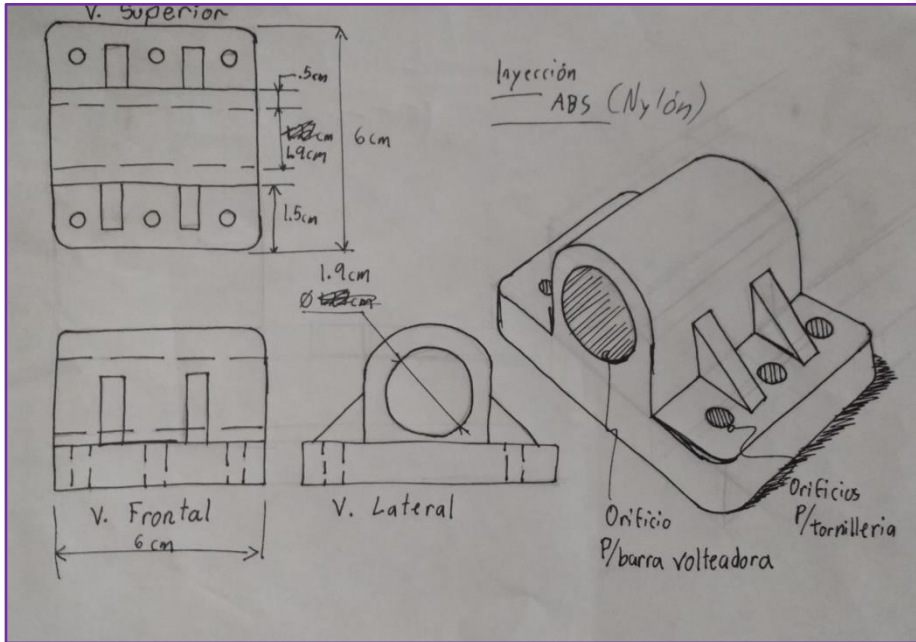 V. Superior
.5cm
cm
1.9cm
6cm
1.5cm
Inyección
ABS (Nylón)
1.9cm
Ø
V. Frontal
6cm
V. Lateral
Orificio
P/barra volteadora
Orificios
P/tornilleria